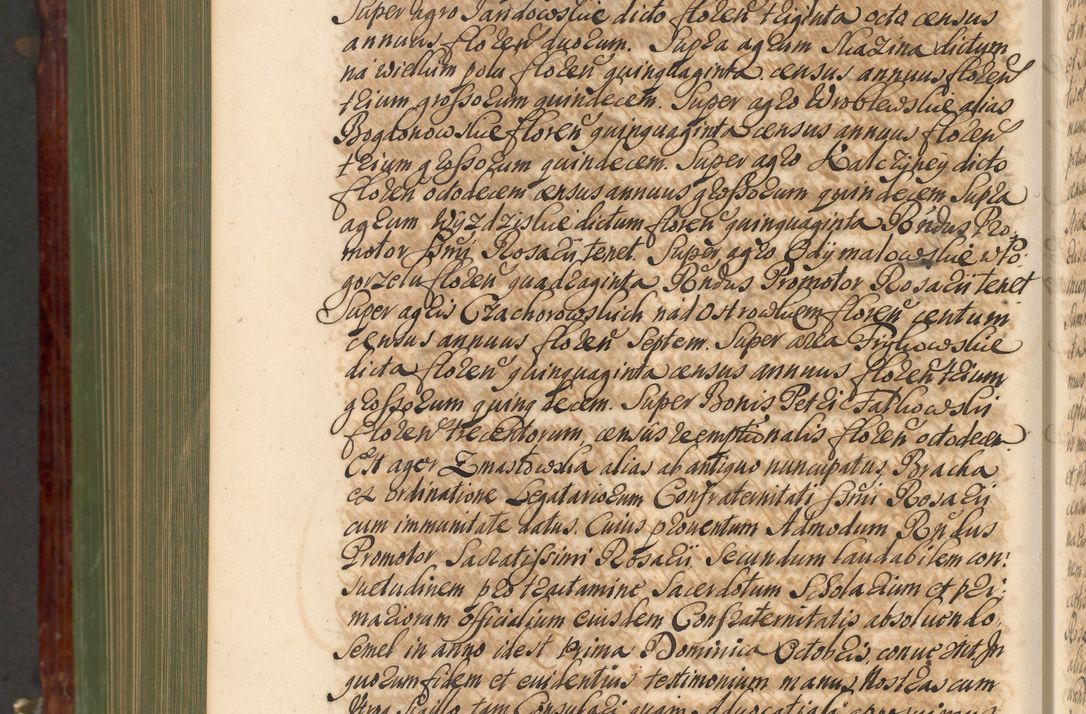 Super agro Jandowskie dicto floren triginta octo census
annuus floren duorum. Supra agrum Skazina dictum
na wielkim polu floren quinquaginta census annuus floren
trium grossorum quindecem. Super agro Wroblewskie alias
Bogdonowskie floren quinquaginta census annuus floren
trium grossorum quindecem. Super agro Kalczyney dicto
floren octodecem census annuus grossorum quindecem Supra
agrum Wyzdzyskie dictum floren quinquaginta Rndus Pro
motor Ssmi Rosarii tenet. Super agro Odymalowskie w Po
gorzelu floren quadraginta Rndus Promotor Rosarii tenet
Super agris Czachorowskich nad Ostrowkiem floren centum
census annuus floren Septem. Super area Fryhowskie
dicta floren quinquaginta census annuus floren trium
grossorum quindecem. Super Bonis Petri Falkowski
floren trecentorum, census reemptionalis floren octodecem
Est ager Zmastowska alias ab antiquo nuncupatus, Bracha
ex ordinatione Legatariorum Confraternitati Ssmi Rosarii
cum immunitate datus. Cuius proventum Admodum Rndus
Promotor Sacratissimi Rosarii, secundum laudabilem con:
suetudinem pro tractamine Sacerdotum Scholarium et pri:
mariorum officialium eiusdem Confraternitatis absolvendo,
semel in anno idest Prima Dominica Octobris, convertit Jn
quorum fidem et evidentius testimonium manus Nostras cum